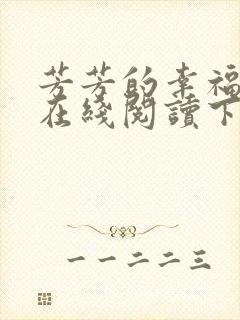 芳芳的幸福
在綫閱讀下
一一二二三